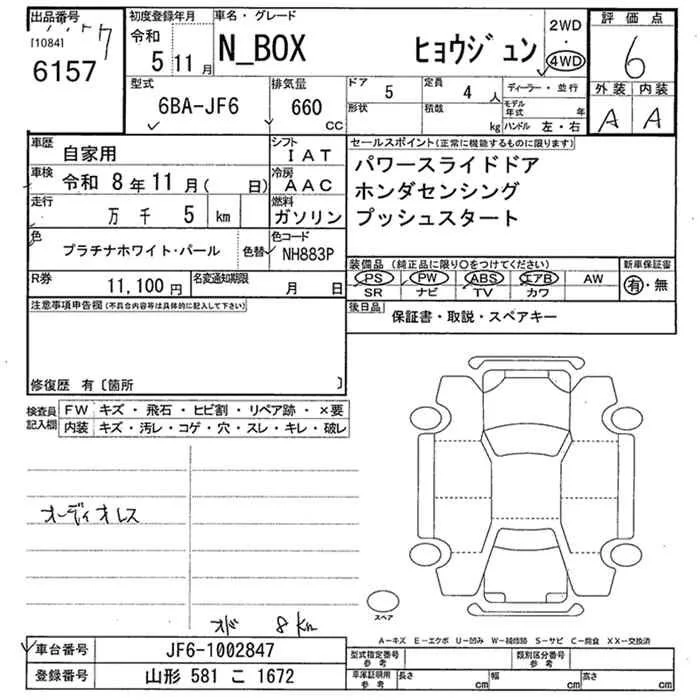 出品番号
[1084]
6157
初度登録年月
令和
5 11月
車名・グレード
N_BOX ヒョウジュン
2WD
・
4WD
評価点
6
外装 内装
A A
型式
6BA-JF6
排気量
660
CC
ドア 5
定員 4 人
形状
積数 kg
ディーラー・並行
モデル年式 年
ハンドル 左・右
車歴
自家用
シフト
IAT
車検
令和 8年11月( 日)
冷房
AAC
走行
万 千 5 km
燃料
ガソリン
色
プラチナホワイト・パール
色替
色コード
NH883P
R券
11,100円
名変通知期限
月 日
セールスポイント(正常に機能するものに限ります)
パワースライドドア
ホンダセンシング
プッシュスタート
装備品 (純正品に限り○をつけてください)
PS PW ABS エアB AW
SR ナビ TV カワ
新車保証書
有・無
後日品
保証書・取説・スペアキー
注意事項申告欄(不具合内容等は具体的に記入して下さい)
修復歴 有〔箇所 〕
検査員記入欄
FW キズ・飛石・ヒビ割・リペア跡・×要
内装 キズ・汚レ・コゲ・穴・スレ・キレ・破レ
オーディオレス
8km
スペア
A−キズ E−エクボ U−凹み W−補修跡 S−サビ C−腐食 XX−交換済
車台番号
JF6-1002847
登録番号
山形 581 こ 1672
型式指定番号
参考
類別区分番号
参考
車庫証明用
参考
長さ cm
幅 cm
高さ cm